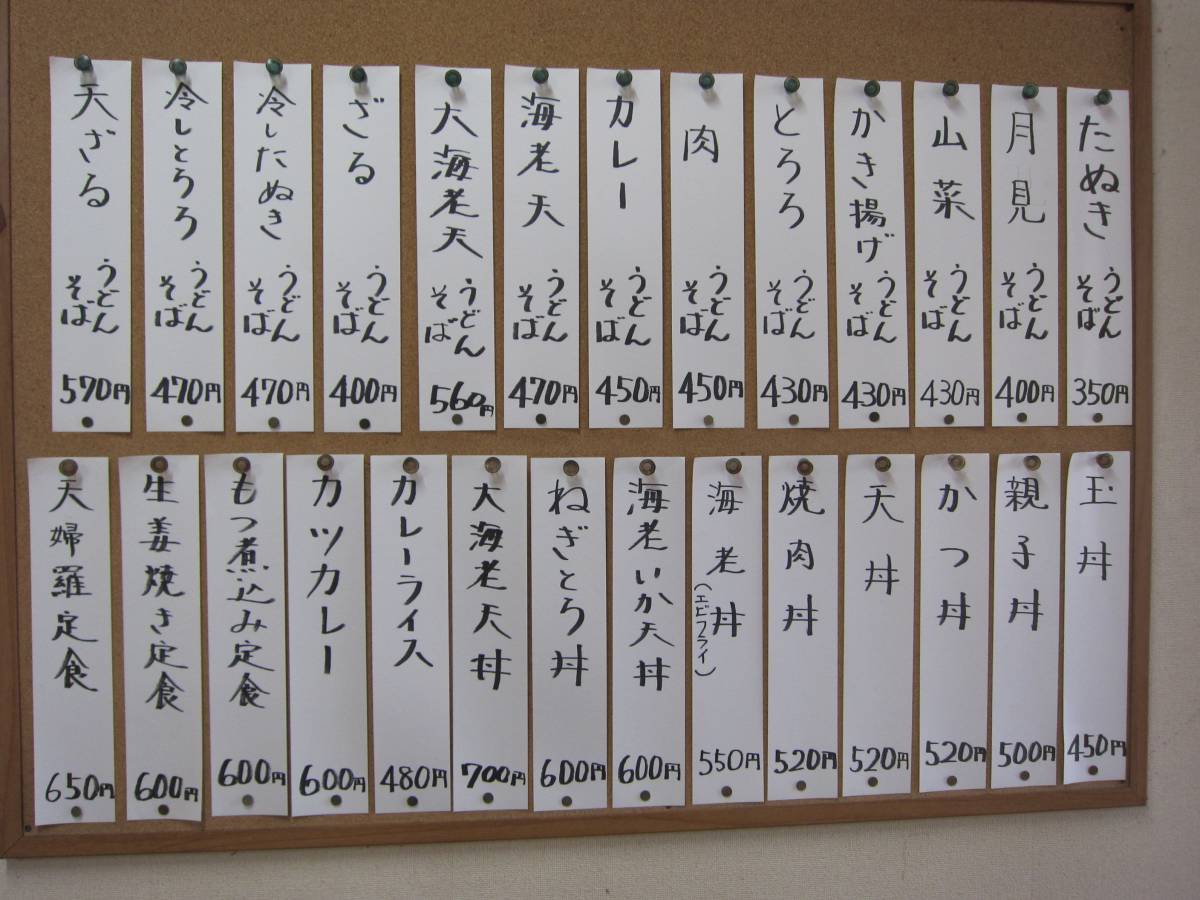 たぬき
うどん
そば
350円
月見
うどん
そば
400円
山菜
うどん
そば
430円
かき揚げ
うどん
そば
430円
とろろ
うどん
そば
430円
肉
うどん
そば
450円
カレー
うどん
そば
450円
海老天
うどん
そば
470円
大海老天
うどん
そば
560円
ざる
うどん
そば
400円
冷したぬき
うどん
そば
470円
冷しとろろ
うどん
そば
470円
天ざる
うどん
そば
570円
玉丼
450円
親子丼
500円
かつ丼
520円
天丼
520円
焼肉丼
520円
海老丼
(エビフライ)
550円
海老いか天丼
600円
ねぎとろ丼
600円
大海老天丼
700円
カレーライス
480円
カツカレー
600円
もつ煮込み定食
600円
生姜焼き定食
600円
天婦羅定食
650円